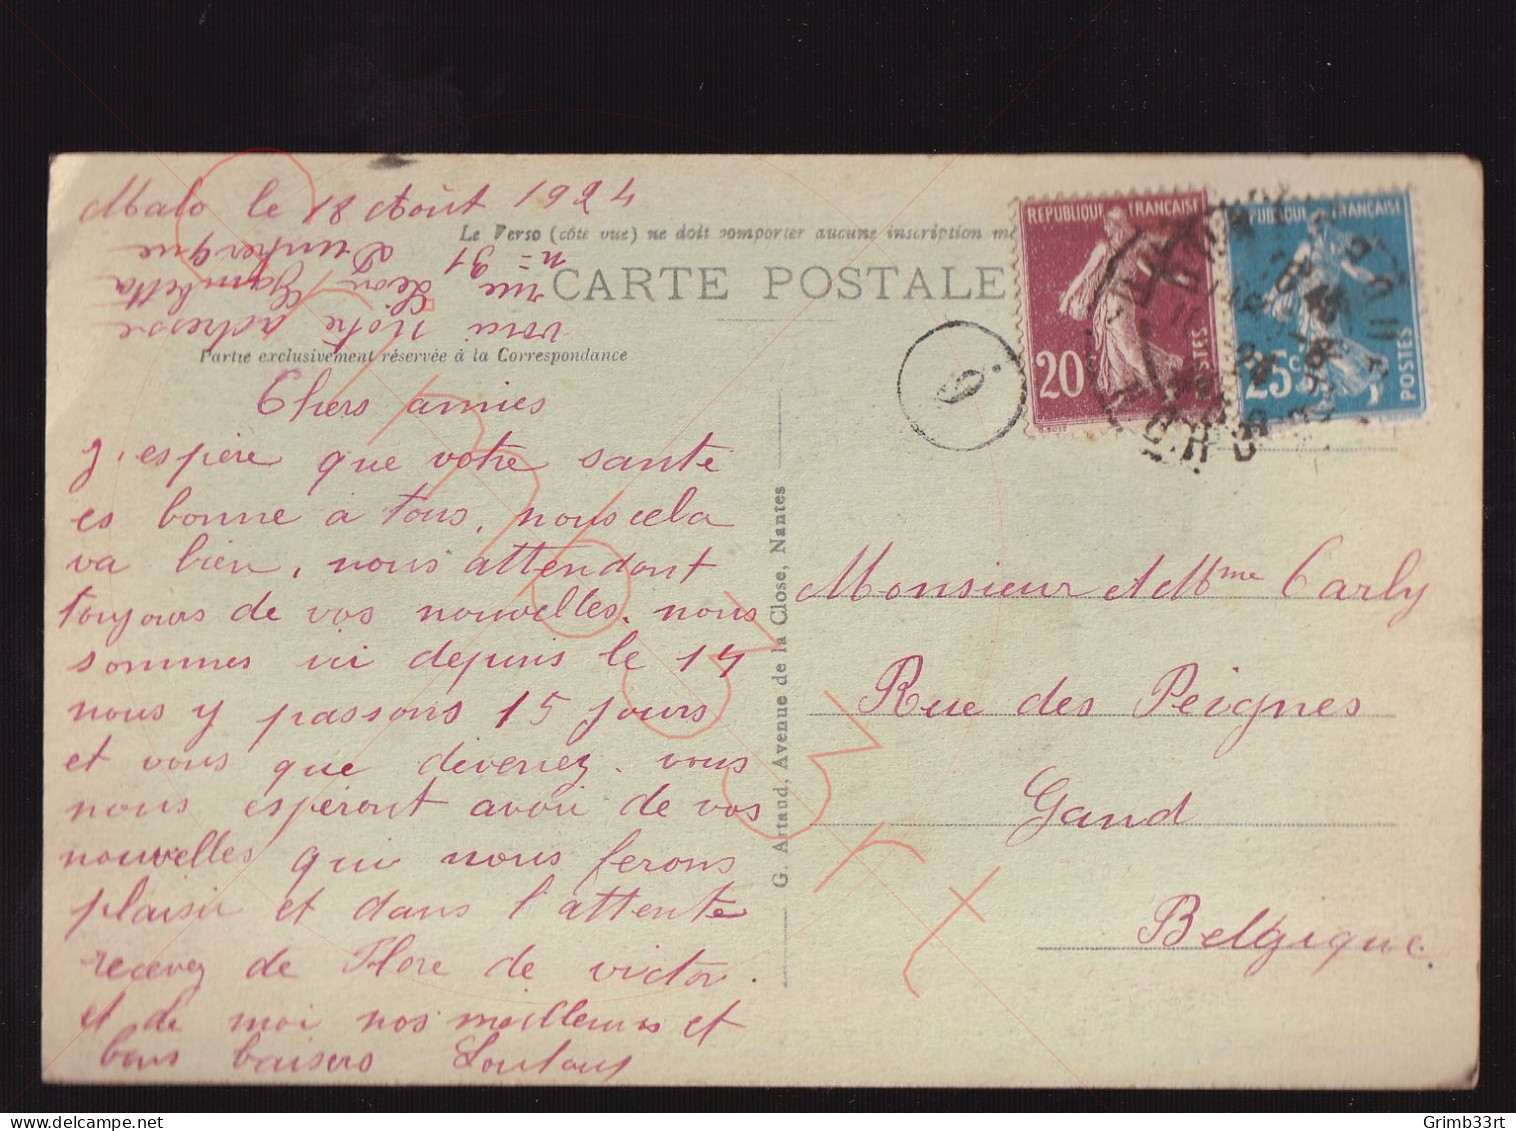 Malo le 18 Août 1924
voici notre adresse
rue Léon Gambetta
n= 31 Dunkerque
Le Verso (côté vue) ne doit comporter aucune inscription
CARTE POSTALE
Partie exclusivement réservée à la Correspondance
Chers amies
J'espère que votre santé
es bonne à tous, nous cela
va bien, nous attendont
toujours de vos nouvelles. nous
sommes ici depuis le 14
nous y passons 15 jours
et vous que devenez. vous
nous espéront avoir de vos
nouvelles qui nous ferons
plaisir et dans l'attente
recevez de Flore de victor
et de moi nos meilleures et
bons baisers Loulou
G. Artaud, Avenue de la Close, Nantes
REPUBLIQUE FRANÇAISE
20c
POSTES
REPUBLIQUE FRANÇAISE
25c
POSTES
9
Monsieur et Mme Carly
Rue des Peignes
Gand
Belgique.
Grimb33rt
Grimb33rt